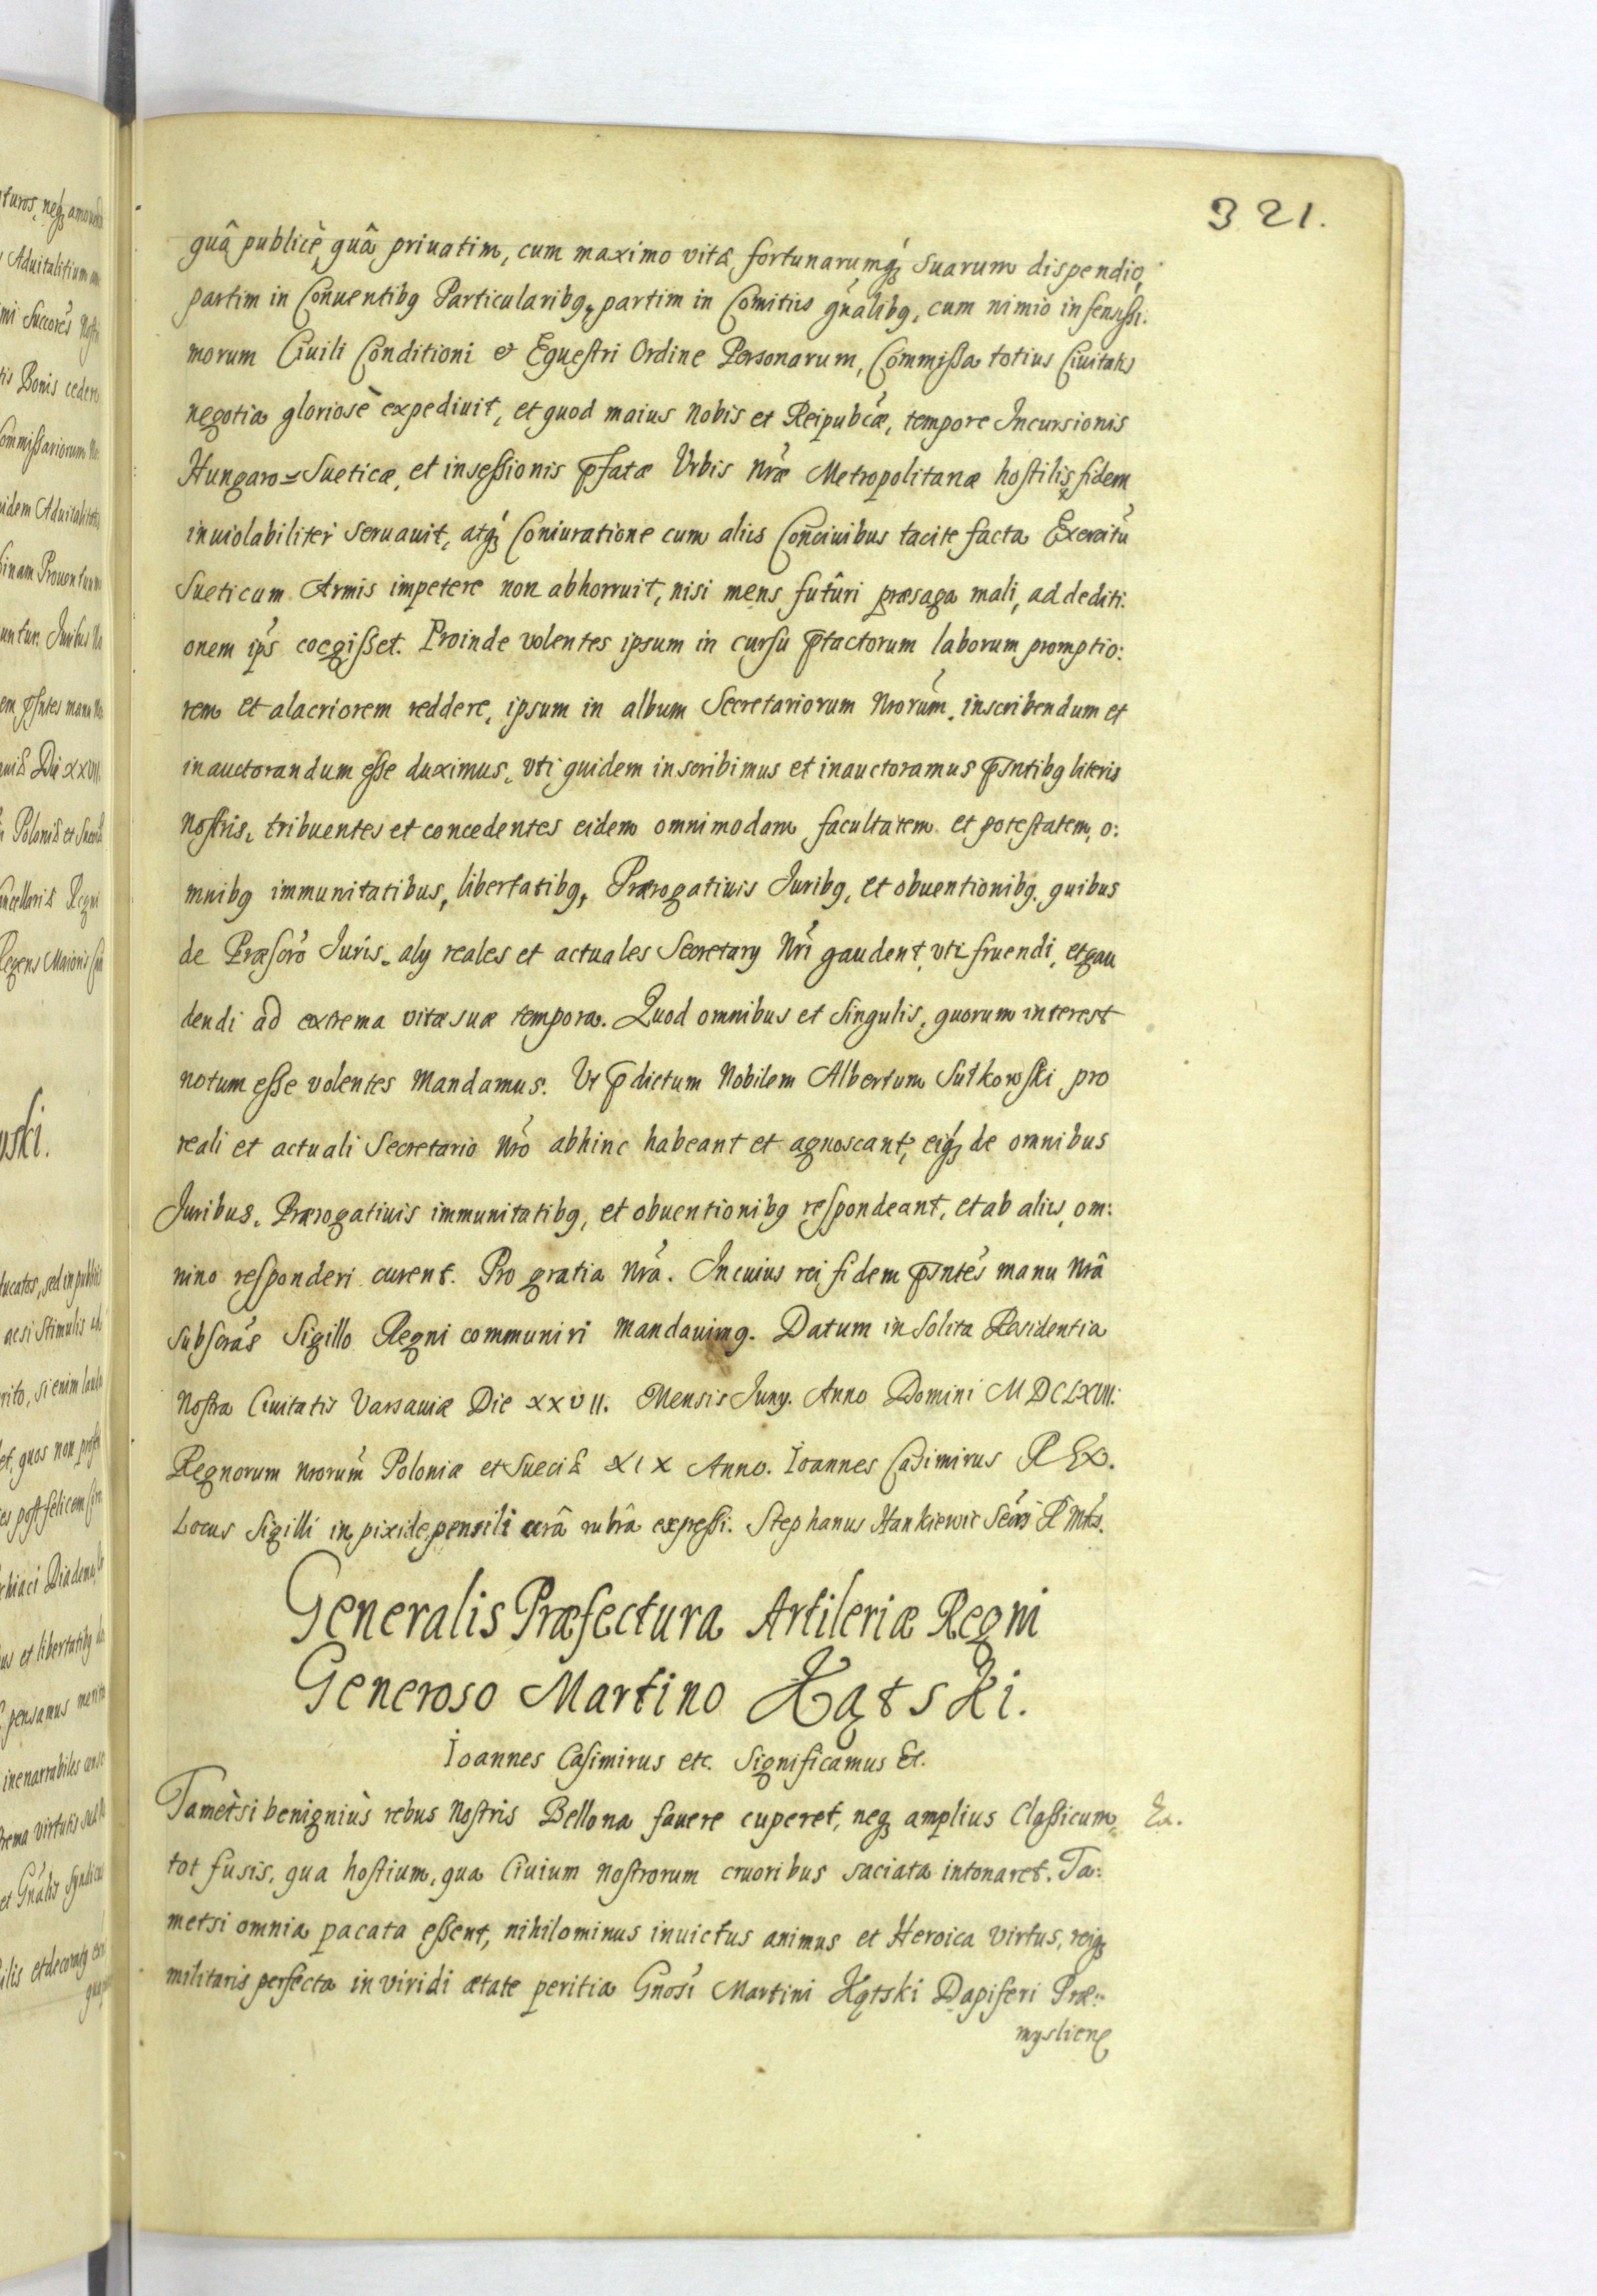 321.
quâ publicè quâ priuatim, cum maximo vitæ fortunarumq́ꝫ suarum dispendio,
partim in Conuentibꝯ Particularibꝯ, partim in Comitiis gn̄alibꝯ, cum nimio infensissi:
morum Ciuili Conditioni et Equestri Ordine Personarum, Commissa totius Ciuitatis
negotia gloriosè expediuit, et quod maius Nobis et Reipubcæ, tempore Incursionis
Hungaro=Sueticæ, et insessionis p̄fatæ Vrbis Nræ Metropolitanæ hostilis, fidem
inuiolabiliter seruauit, atq́ꝫ Coniuratione cum aliis Conciuibus tacite facta Exercitũ
Sueticum Armis impetere non abhorruit, nisi mens futûri præsaga mali, ad dediti:
onem ip̃s coegisset. Proinde volentes ipsum in cursu p̄tactorum laborum promptio:
rem et alacriorem reddere, ipsum in album Secretariorum Nrorum. inscribendum et
inauctorandum esse duximus, vti quidem inscribimus et inauctoramus p̄sntibꝯ literis
nostris, tribuentes et concedentes eidem omnimodam facultatem et potestatem, o:
mnibꝯ immunitatibus, libertatibꝯ, Prærogatiuis Juribꝯ, et obuentionibꝯ. quibus
de Præscro Juris. alij reales et actuales Secretarij Nri gaudent, vti fruendi, et gau
dendi ad extrema vitæ suæ tempora. Quod omnibus et singulis, quorum interest
notum esse volentes Mandamus. Vt p̄dictum Nobilem Albertum Sutkowski pro
reali et actuali Secretario Nro abhinc habeant et agnoscant, eiq́ꝫ de omnibus
Juribus. Prærogatiuis immunitatibꝯ, et obuentionibꝯ respondeant, et ab aliis, om:
nino responderi curent. Pro gratia Nra. In cuius rei fidem p̄sntes manu Nrâ
subscras Sigillo Regni communiri mandauimꝯ. Datum in Solita Residentia
Nostra Ciuitatis Varsauiæ Die XXVII. Mensis Junij. Anno Domini MDCLXVII.
Regnorum Nrorum Poloniæ et Sueciæ XIX Anno. Ioannes Casimirus REX.
Locus Sigilli in pixide pensili cerâ rubrâ expressi. Stephanus Hankiewic Secrs R Mtis.
Generalis Præfectura Artileriæ Regni
Generoso Martino Kątski.
Ioannes Casimirus etc. Significamus Et.
Tametsi benigniùs rebus Nostris Bellona fauere cuperet, neqꝫ amplius Classicum, Ex.
tot fusis, qua hostium, qua Ciuium nostrorum cruoribus saciata intonaret. Ta:
metsi omnia pacata essent, nihilominus inuictus animus et Heroica virtus, reiqꝫ
militaris perfecta in viridi ætate peritia Gnosi Martini Kątski Dapiferi Præ:
myslien